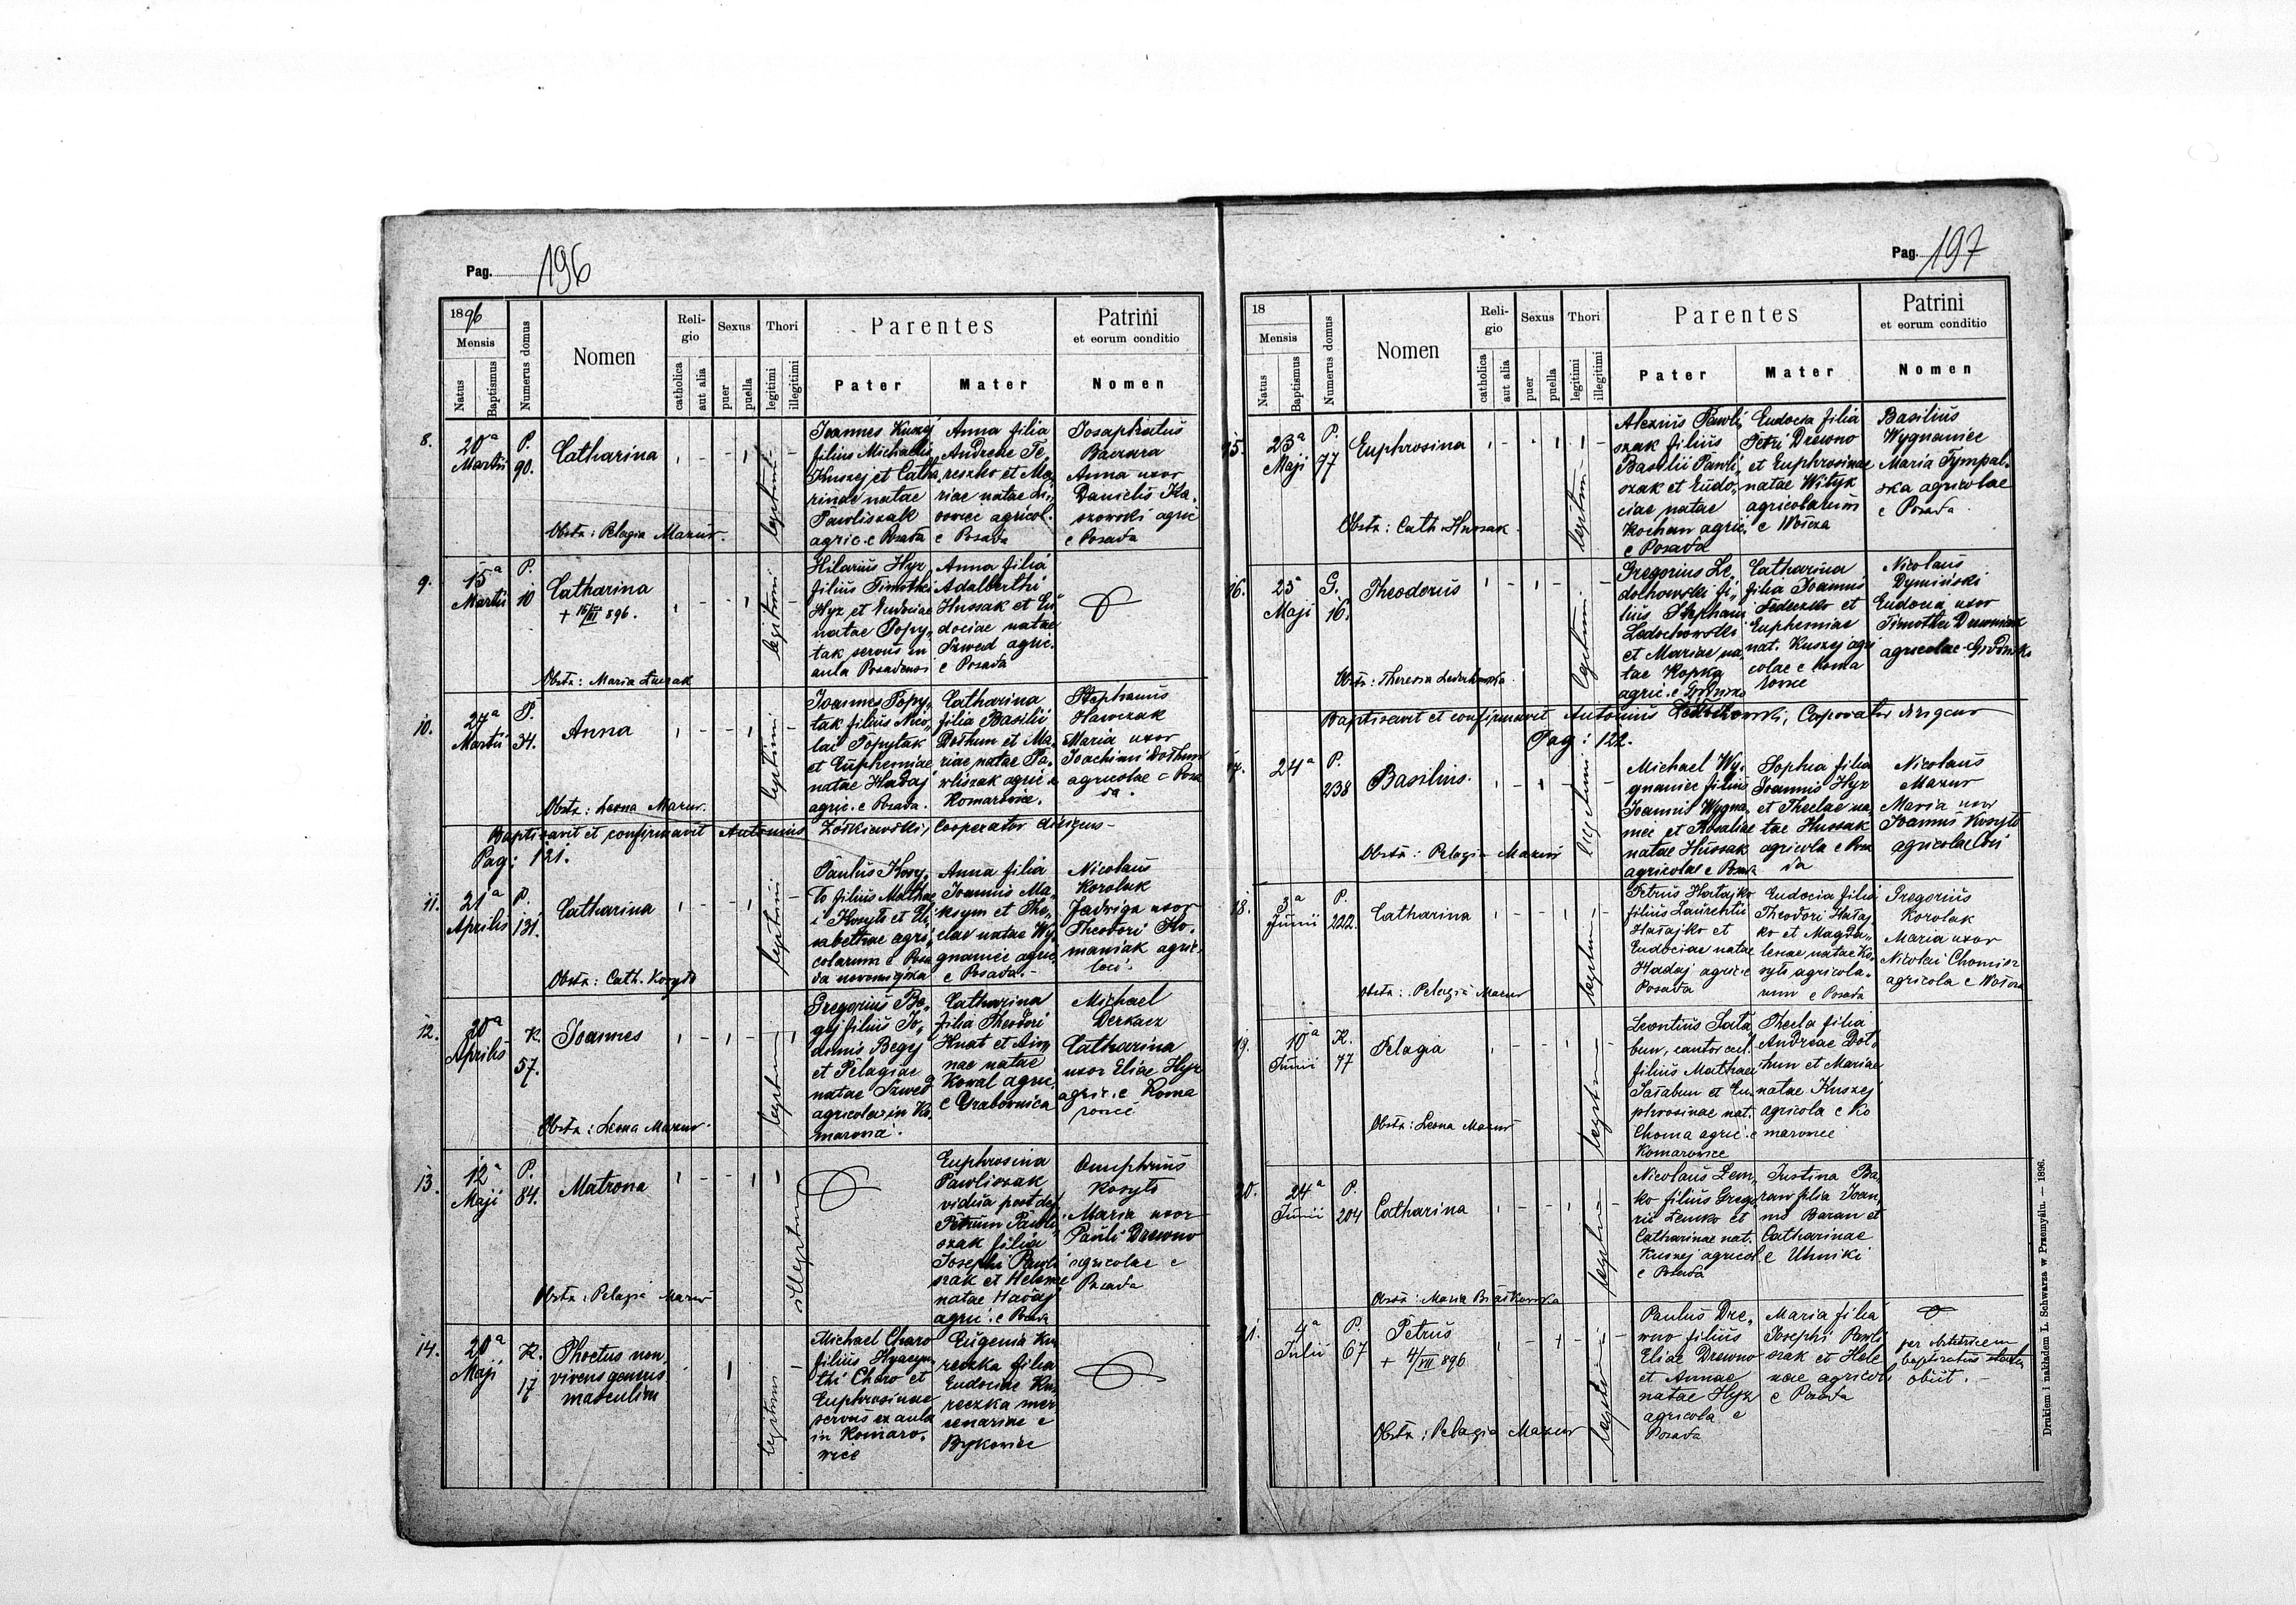 Pag. 196
1896
Mensis
Natus
Baptismus
Numerus domus
Nomen
Reli-
gio
catholica
aut alia
Sexus
puer
puella
Thori
legitimi
illegitimi
Parentes
Pater
Mater
Patrini
et eorum conditio
Nomen
8.
20a
Martii
P.
90.
Catharina
Obstx: Pelagia Mazur.
legitimi
Joannes Kuszej
filius Michaelis
Kuszej et Catha„
rinae natae
Pawliszak
agric. e Posada
Anna filia
Andreae Te„
reszko et Ma„
riae natae
agricol.
e Posada
Josaphatus
Baczara
Anna uxor
Danielis Ka„
szowski agric
e Posada
9.
15a
Martii
P.
10
Catharina
+ 16/III 896.
Obstx: Maria
legitimi
Hilarius Hyz
filius Timothei
Hyz et Eudociae
natae Popy„
tak servus in
aula Posadensi
Anna filia
Adalberthi
Hussak et Eu
dociae natae
Szwed agric.
e Posada
10.
27a
Martii
P.
34.
Anna
Obstx: Leona Mazur.
legitimi
Joannes Popy„
tak filius Nico„
lai Popytak
et Euphemiae
natae Hadaj
agric. e Posada.
Catharina
filia Basilii
Dothun et Ma„
riae natae Pa„
wliszak agric. e
Komarowice.
Stephanus
Hawczak
Maria uxor
Joachimi Dothun
agricolae e Posa
da.
Baptisavit et confirmavit Antonius Cooperator dirigens-
Pag: 121.
11.
21a
Aprilis
P.
131.
Catharina
Obstx: Cath. Kosyto
legitimi
Paulus Kosy„
to filius Mathae
i Kosyto et Eli„
sabethae agri„
colarum e Posa
da
Anna filia
Joannis Ma„
ksym et The„
clae natae Wy„
gnaniec agric.
e Posada.-
Nicolaus
Korolak
Jadwiga uxor
Theodori Ho„
maniak agric.
loci.
12.
20a
Aprilis
K.
57.
Joannes
Obstx: Leona Mazur.
Gregorius Be„
gej filius Jo„
annis Begej
et Pelagiae
natae Szwed
agricola in Ko„
marowi.
Catharina
filia Theodori
Hnat et An„
nae natae
Kowal agric.
e Grabownica
Michael
Derkacz
Catharina
uxor Eliae Hyz
agric. e Koma
rowce
13.
12a
Maji
P.
84.
Matrona
Obstx: Pelagi Mazur
illegitimi
Euphrosina
Pawliszak
vidua post def.
Petrum Pawli„
szak filia
Josephi Pawli
szak et Helenae
natae Hadaj
agric. e Posada
Onuphrius
Kosyto
Maria uxor
Pauli Drewno
agricolae e
Posada
14.
20a
Maji
K.
17
Phoetus non„
vivens generis
masculini
legitimi
Michael Charo
filius Hyacyn„
thi Charo et
Euphrosinae
servus ex aula
in Komaro„
wice
Eugenia Ku„
reczka filia
Eudociae Ku„
reczka mer
cenariae e
Bykowice
Pag. 197
18
Mensis
Natus
Baptismus
Numerus domus
Nomen
Reli-
gio
catholica
aut alia
Sexus
puer
puella
Thori
legitimi
illegitimi
Parentes
Pater
Mater
Patrini
et eorum conditio
Nomen
15.
23a
Maji
P.
77
Euphrosina
Obstx: Cath. Hussak.
legitimi
Alexius Pawli„
szak filius
Basilii Pawli„
szak et Eudo„
ciae natae
Kochan agric.
e Posada
Eudocia filia
Petri Drewno
et Euphrosinae
natae Wityk
agricolarum
e Wolcza
Basilius
Wygnaniec
Maria Tympal„
ska agricolae
e Posada
16.
25a
Maji
G.
16.
Theodorus
Obstx: Theresia Ledochowska.
legitimi
Gregorius Le„
dochowski fi„
lius Stephani
Ledochowski
et Mariae na„
tae Kopka
agric. e Grodzisko
Catharina
filia Joannis
Fedeczko et
Euphemiae
nat. Kuszej agri
colae e Koma
rowce
Nicolaus
Dyminski
Eudocia uxor
Timothei Drewniak
agricolae Grodzisko
Baptisavit et confirmavit Antonius Cooperator dirigens
Pag: 122.
17.
24a
P.
238
Basilius.
Obstx: Pelagia Mazur
legitimi
Michael Wy„
gnaniec filius
Joannis Wygna„
niec et Rosaliae
natae Hussak
agricolae e Posada
Sophia filia
Joannis Hyz
et Theclae na„
tae Hussak
agricola e Posa
da
Nicolaus
Mazur
Maria uxor
Joannis Kosyto
agricolae loci
18.
3a
Junii
P.
222.
Catharina
Obstx: Pelagia Mazur
legitimi
Petrus Hatajko
filius Laurentii
Hatajko et
Eudociae natae
Hadaj agric. e
Posada
Eudocia filia
Theodori Hataj„
ko et Magda„
lenae natae Ko„
syto agricola„
rum e Posada
Gregorius
Korolak
Maria uxor
Nicolai Chomisz
agricola e Wolcza
19.
10a
Junii
K.
77
Pelagia
Obstx: Leona Mazur
legitimi
Leontius Sata
bun, cantor eccl.
filius Mathaei
Satabun et Eu„
phrosinae nat.
Choma agric. e
Komarowice
Thecla filia
Andreae Dot„
hun et Mariae
natae Kuszej
agricola e Ko
marowce
20.
24a
Junii
P.
204
Catharina
Obstx: Maria
legitimi
Nicolaus Lem„
ko filius Grego„
rii Lemko et
Catharinae nat.
Kuszej agricol.
e Posada
Justina Ba„
ran filia Joan„
nis Baran et
Catharinae
e Uhniki
21.
4a
Julii
P.
67
Petrus
+ 4/VII 896
Obstx: Pelagia Mazur
legitimi
Paulus Dre„
wno filius
Eliae Drewno
et Annae
natae Hyz
agricola e
Posada
Maria filia
Josephi Pawli
szak et Hele
nae agricol.
e Posada
per obstetricem
baptisatus
obiit.-
Drukiem i nakładem L. Schwarza w Przemyślu. — 1896.